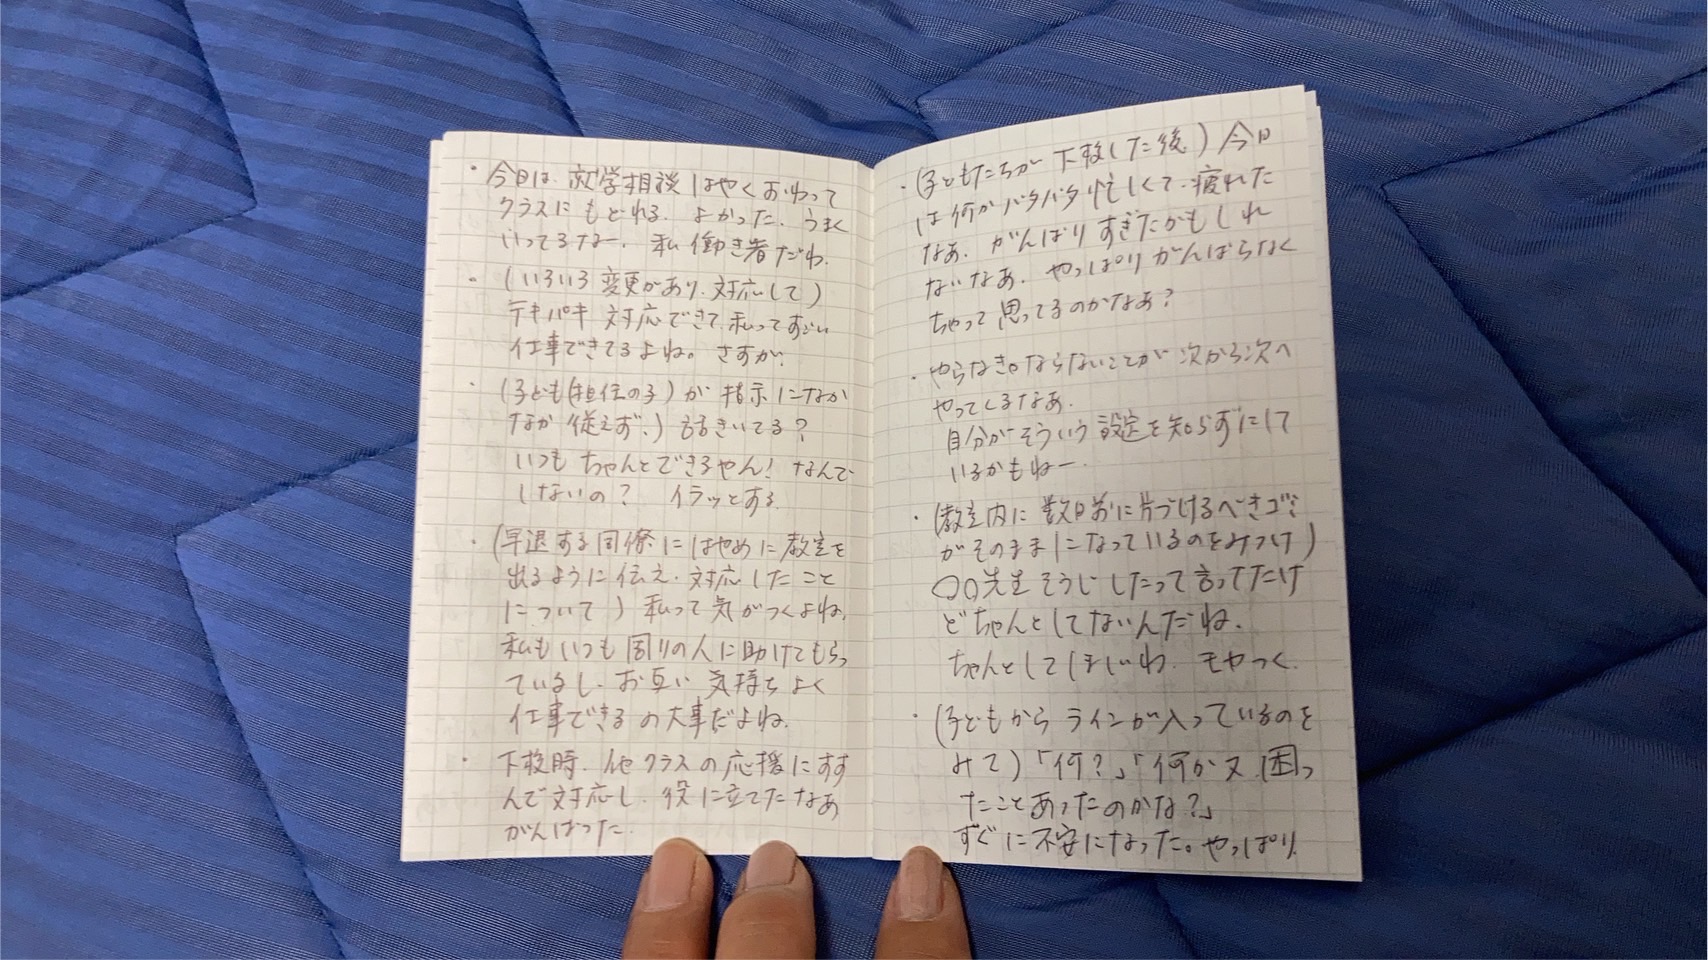 ・今日は、就学相談はやくおわって
クラスにもどれる。よかった。うまく
いってるなー。私働き者だわ。
・(いろいろ変更があり、対応して)
テキパキ対応できて、私ってすごい
仕事できてるよね。さすが。
・(子ども(担任の子)が指示になか
なか従えず、)話きいてる?
いつもちゃんとできるやん!なんで
しないの? イラッとする
・(早退する同僚にはやめに教室を
出るように伝え、対応したこと
について)私って気がつくよね。
私もいつも周りの人に助けてもらっ
ているし、お互い気持ちよく
仕事できるの大事だよね。
・下校時、他クラスの応援にすす
んで対応し、役に立てたなあ
がんばった。
・(子どもたちが下校した後)今日
は何かバタバタ忙しくて、疲れた
なあ。がんばりすぎたかもしれ
ないなあ。やっぱりがんばらなく
ちゃって思ってるのかなあ?
・やらなきゃならないことが次から次へ
やってくるなあ。
自分がそういう設定を知らずにして
いるかもねー。
・(教室内に数日前に片づけるべきゴミ
がそのままになっているのをみつけ)
〇〇先生そうじしたって言ってたけ
どちゃんとしてないんだね。
ちゃんとしてほしいわ。モヤつく。
・(子どもからラインが入っているのを
みて)「何?」「何か又、困っ
たことあったのかな?」
すぐに不安になった。やっぱり